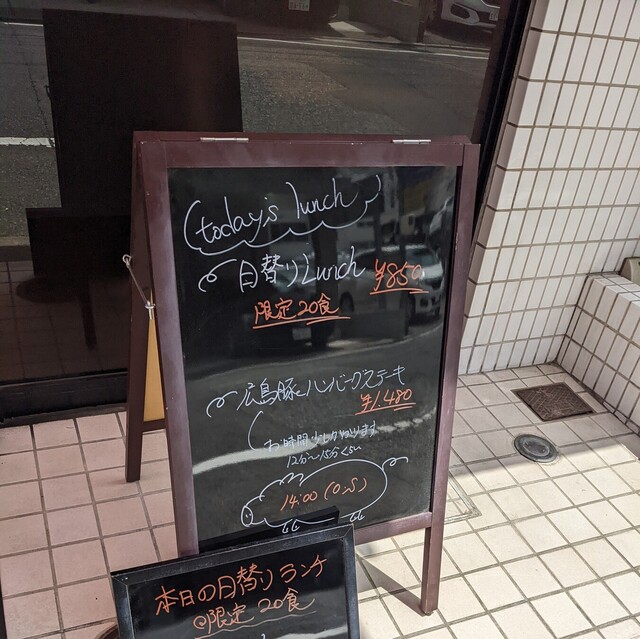 today's lunch
日替りLunch ¥850
限定20食
広島豚ハンバーグステーキ
¥1,480
お時間少しかかります
12分〜15分くらい
14:00 (O.S)
本日の日替りランチ
限定 20食